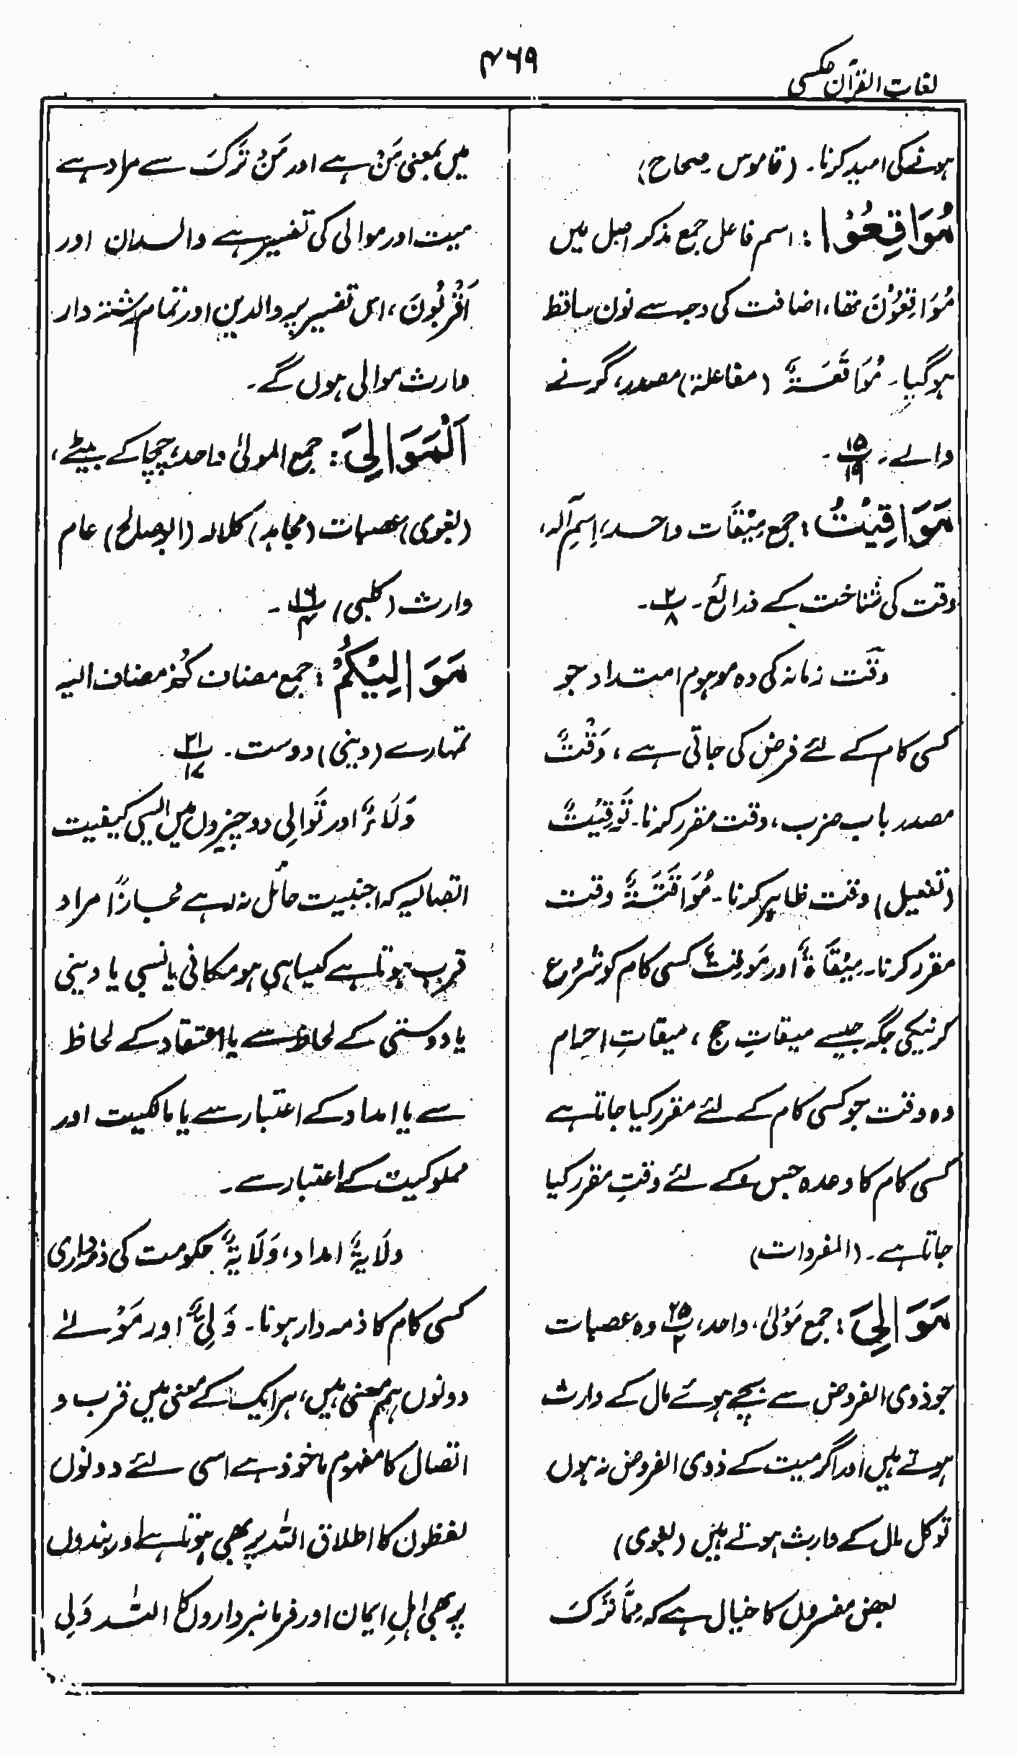 لغات القرآن عکسی
۴۶۹
ہونے کی امید کرنا۔ (قاموس۔ صحاح)
مُوَاقِعُوْا : اسم فاعل جمع مذکر اصل میں
مُوَاقِعُوْنَ تھا، اضافت کی وجہ سے نون ساقط
ہوگیا۔ مُوَاقَعَۃٌ (مفاعلۃ) مصدر، گرنے
والے۔ ۱۵/۱۹۔
مَوَاقِیْتُ : جمع مِیْقَات واحد، اِسمِ آلہ،
وقت کی شناخت کے ذرائع۔ ۲/۸۔
وقت زمانہ کی وہ موہوم امتداد جو
کسی کام کے لئے فرض کی جاتی ہے، وَقْتٌ
مصدر باب ضرب، وقت مقرر کرنا۔ تَوْقِیْتٌ
(تفعیل) وقت ظاہر کرنا۔ مُوَاقَتَۃٌ وقت
مقرر کرنا۔ مِیْقَاۃٌ اور مَوْقِتٌ کسی کام کو شروع
کرنیکی جگہ جیسے میقاتِ حج، میقاتِ احرام
وہ وقت جو کسی کام کے لئے مقرر کیا جاتا ہے
کسی کام کا وعدہ جس کے لئے وقتِ مقرر کیا
جاتا ہے۔ (المفردات)
مَوَالِیَ : جمع مَوْلیٰ، واحد، ۲۵/۲ وہ عصبات
جو ذوی الفروض سے بچے ہوئے مال کے وارث
ہوتے ہیں اور اگر میت کے ذوی الفروض نہ ہوں
تو کل مال کے وارث ہوتے ہیں (بغوی)
بعض مفسروں کا خیال ہے کہ مِمَّا تَرَکَ
میں بمعنی مَنْ ہے اور مَنْ تَرَکَ سے مراد ہے
میت اور موالی کی تفسیر ہے والدان اور
اَقْرَبُونَ، اس تفسیر پر والدین اور تمام رشتہ دار
وارث موالی ہوں گے۔
اَلْمَوَالِیَ : جمع المولیٰ واحد، چچا کے بیٹے،
(بغوی) عصبات (مجاہد) کلالہ (ابوصالح) عام
وارث (کلبی) ۱۶/۴۔
مَوَالِیْکُمْ : جمع مضاف کُمْ مضاف الیہ
تمہارے (دینی) دوست۔ ۲۱/۱۷۔
وَلَاءٌ اور تَوَالِی دو چیزوں میں ایسی کیفیت
اتصالیہ کہ اجنبیت حائل نہ رہے مجازًا مراد
قرب ہوتا ہے کیسا ہی ہو مکانی یا نسبی یا دینی
یا دوستی کے لحاظ سے یا اعتقاد کے لحاظ
سے یا امداد کے اعتبار سے یا مالکیت اور
مملوکیت کے اعتبار سے۔
وِلَایۃٌ امداد، وَلَایۃٌ حکومت کی ذمہ داری
کسی کام کا ذمہ دار ہونا۔ وَلِیٌّ اور مَوْلےٰ
دونوں ہم معنی ہیں، ہر ایک کے معنی میں قرب و
اتصال کا مفہوم ماخوذ ہے اسی لئے دونوں
لفظوں کا اطلاق اللہ پر بھی ہوتا ہے اور بندوں
پر بھی اہلِ ایمان اور فرمانبرداروں کا اللہ وَلی